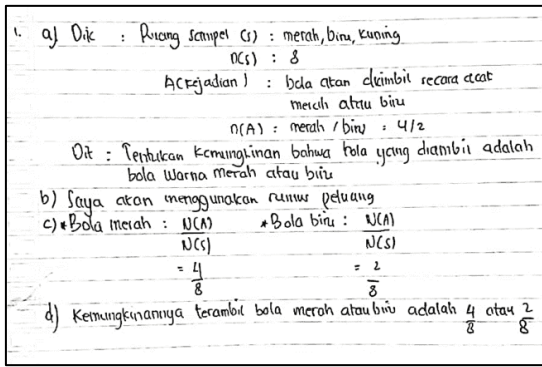 1. a) Dik : Ruang Sampel (s) : merah, biru, kuning
n(s) : 8
A(Kejadian) : bola akan diambil secara acak
merah atau biru
n(A) : merah / biru : 4/2
Dit : Tentukan Kemungkinan bahwa bola yang diambil adalah
bola warna merah atau biru
b) Saya akan menggunakan rumus peluang
c) * Bola merah : N(A)/N(S) * Bola biru : N(A)/N(S)
= 4/8 = 2/8
d) Kemungkinannya terambil bola merah atau biru adalah 4/8 atau 2/8